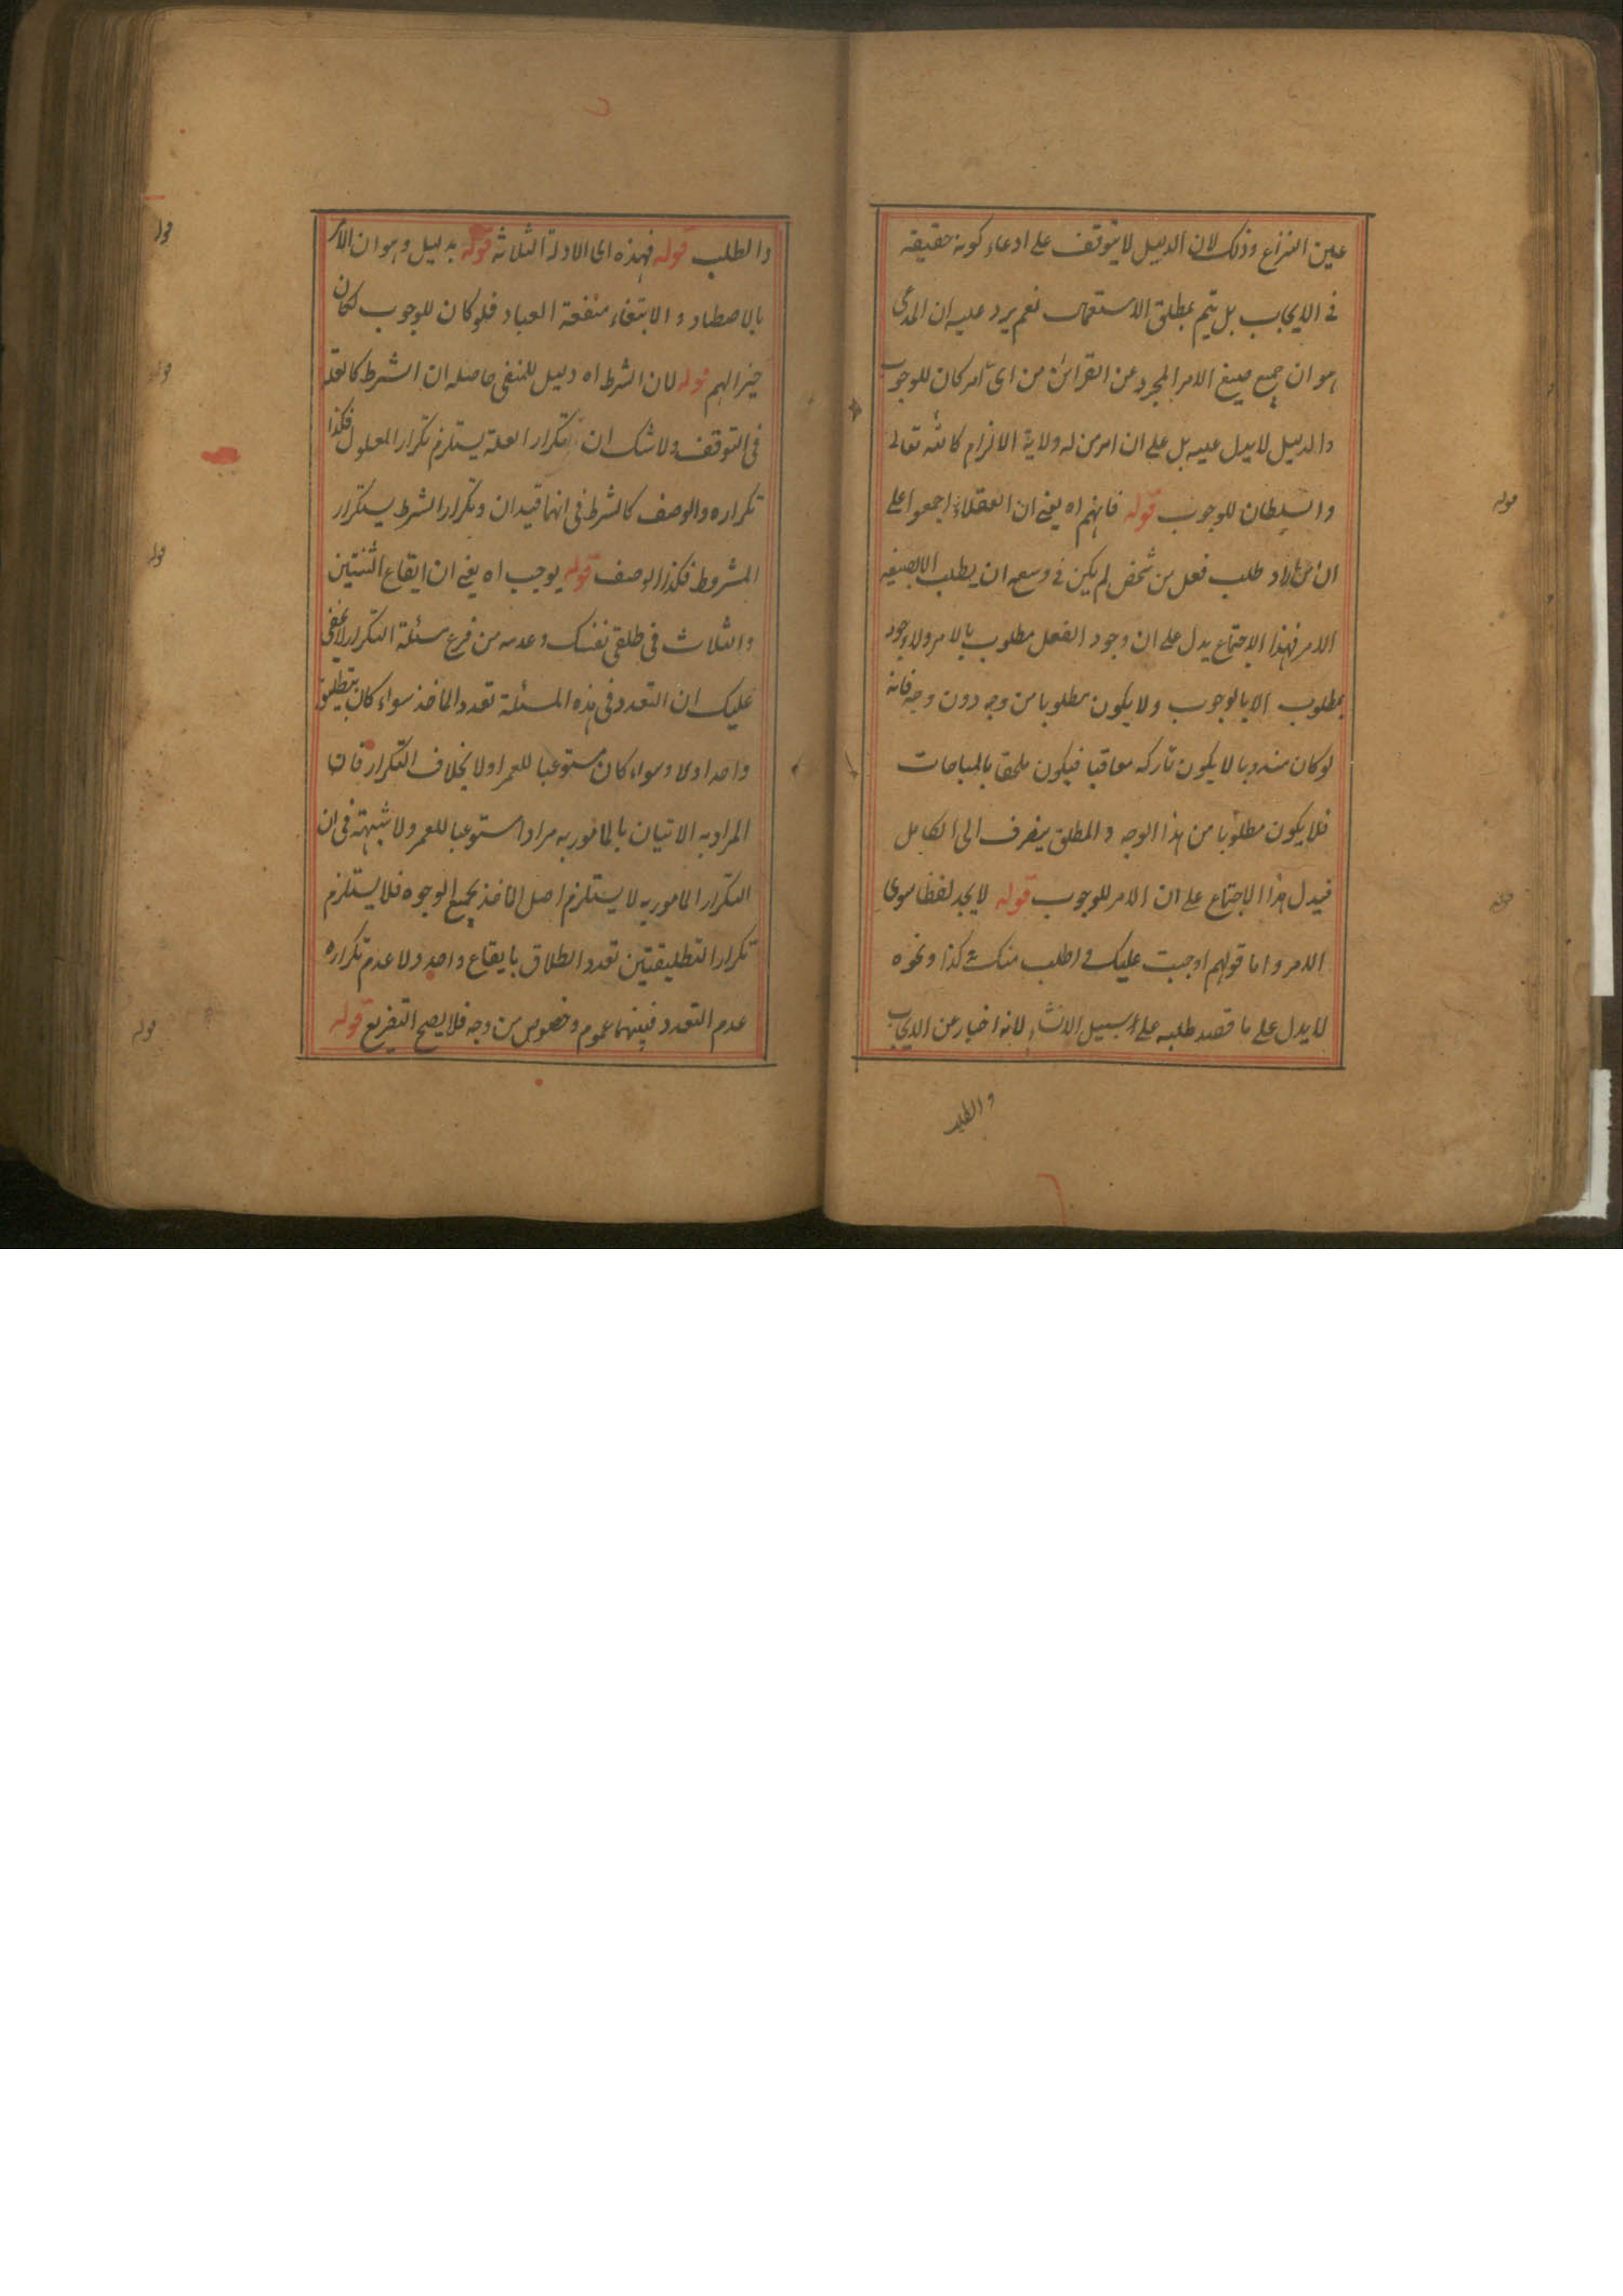 عين النزاع وذلك لان الدليل لا يتوقف على ادعاء كونه حقيقة
فى الايجاب بل يتم بمطلق الاستعمال نعم يرد عليه ان المدعى
هو ان جميع صيغ الامر المجرد عن القرائن من اىّ امر كان للوجوب
والدليل لا يدل عليه بل على ان امر من له ولاية الالزام كالله تعالى
والسلطان للوجوب قوله فانهم اه يعنى ان العقلاء اجمعوا على
ان من اراد طلب فعل من شخص لم يكن فى وسعه ان يطلب الا بصيغة
الامر فهذا الاجماع يدل على ان وجود الفعل مطلوب بالامر ولا وجود
بمطلوب الا بالوجوب ولا يكون مطلوبا من وجه دون وجه فانه
لو كان مندوبا لا يكون تاركه معاقبا فيكون ملحقا بالمباحات
فلا يكون مطلوبا من هذا الوجه والمطلق يصرف الى الكامل
فيدل هذا الاجماع على ان الامر للوجوب قوله لا يجد لفظا سوى
الامر واما قولهم اوجبت عليك واطلب منك كذا ونحوه
لا يدل على ما قصد طلبه على سبيل الانشاء لانه اخبار عن الايجاب
والطلب
قوله
قوله
والطلب قوله فهذه اى الادلة الثلاثة قوله بدليل وهو ان الامر
بالاصطياد والابتغاء منفعة العباد فلو كان للوجوب لكان
خيرا لهم قوله لان الشرط اه دليل للمنفى حاصله ان الشرط كالعلة
فى التوقف ولا شك ان تكرار العلة يستلزم تكرار المعلول فكذا
تكراره والوصف كالشرط فى انهما قيدان وتكرار الشرط يستكرار
المشروط فكذا الوصف قوله يوجب اه يعنى ان ايقاع الثنتين
والثلاث فى طلقى نفسك وعدمه من فرع مسئلة التكرار لا يخفى
عليك ان التعدد فى هذه المسئلة تعدد الماخذ سواء كان بتطليق
واحد اولا وسواء كان مستوعبا للعمر اولا بخلاف التكرار فان
المراد به الاتيان بالمامور به مرارا مستوعبا للعمر ولا شبهة فى ان
التكرار المامور به لا يستلزم اصل الماخذ بجميع الوجوه فلا يستلزم
تكرار التطليقتين تعدد الطلاق بايقاع واحد ولا عدم تكراره
عدم التعدد فبينهما عموم وخصوص من وجه فلا يصح التفريع قوله
قوله
قوله
قوله
قوله